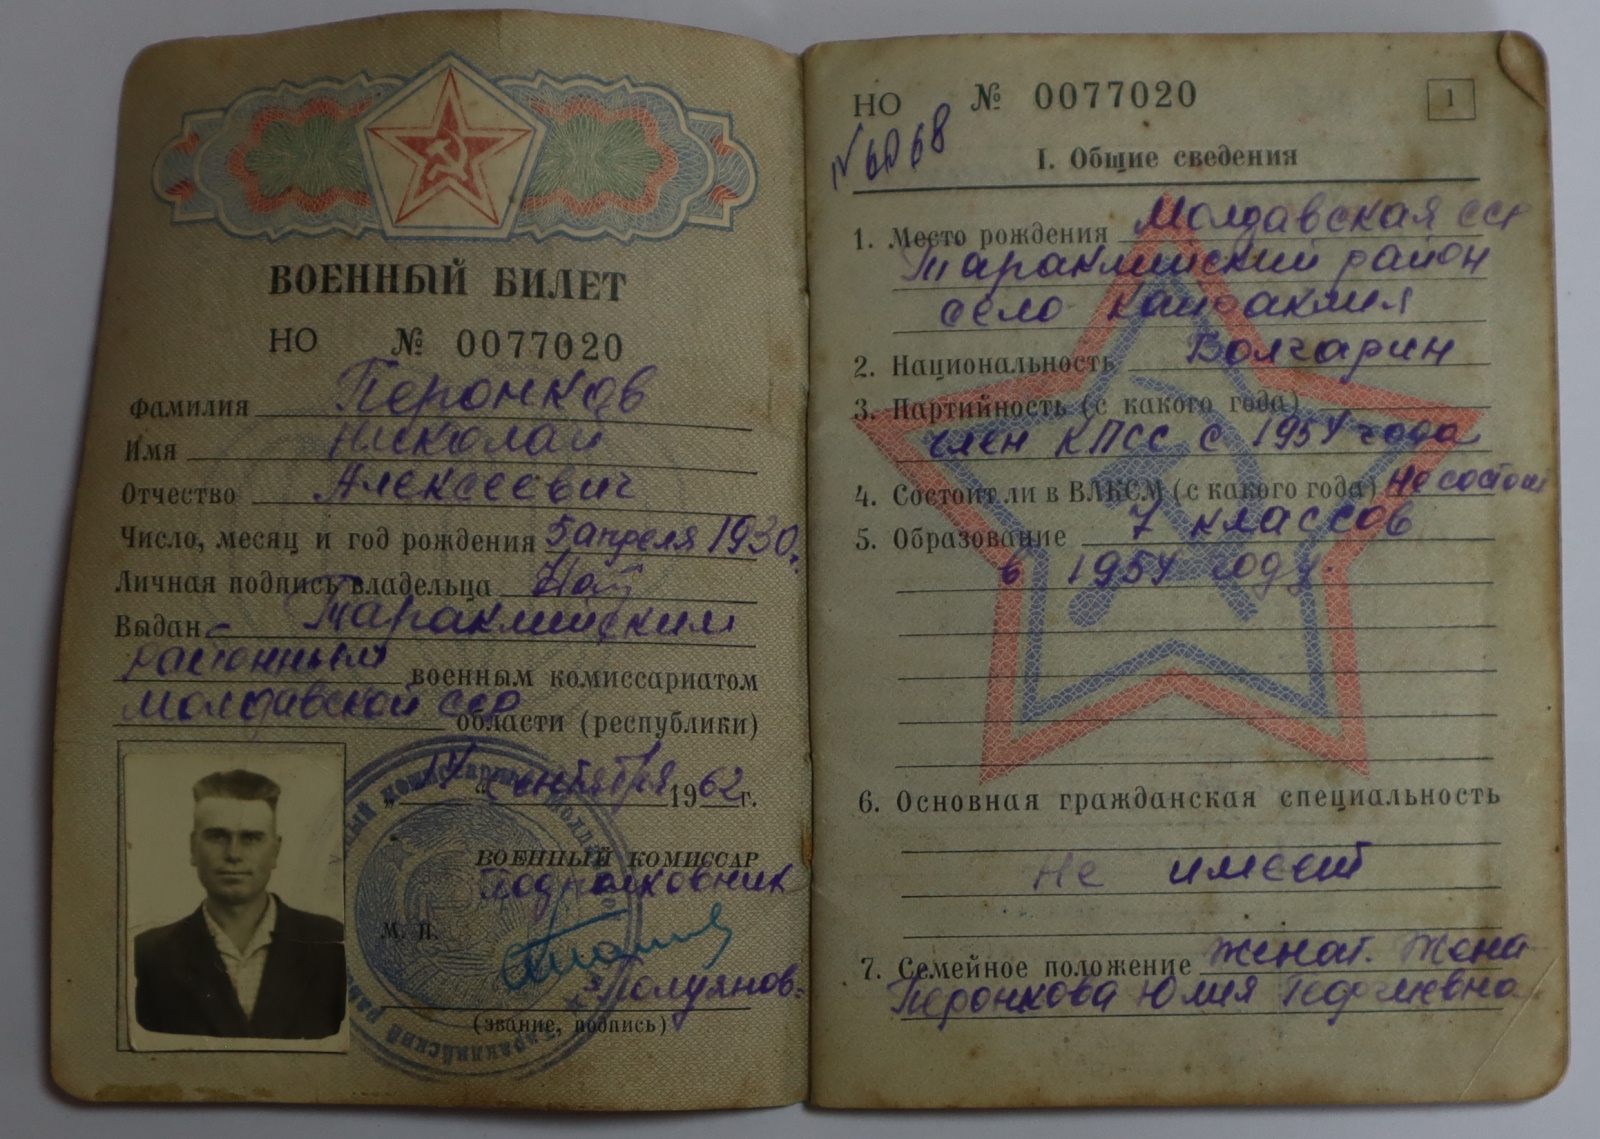 ВОЕННЫЙ БИЛЕТ
НО № 0077020
Фамилия Перонков
Имя Николай
Отчество Алексеевич
Число, месяц и год рождения 5 апреля 1930г.
Личная подпись владельца
Выдан Тараклийским
районным военным комиссариатом
Молдавской ССР области (республики)
сентября 1962г.
ВОЕННЫЙ КОМИССАР
Подполковник
М. П.
Полуянов
(звание, подпись)
НО № 0077020
1
I. Общие сведения
1. Место рождения Молдавская сср
Тараклийский район
село Кайраклия
2. Национальность Волгарин
3. Партийность (с какого года)
член КПСС с 1954 года
4. Состоит ли в ВЛКСМ (с какого года) Не состоит
5. Образование 7 классов
в 1954 году.
6. Основная гражданская специальность
Не имеет
7. Семейное положение Женат. Жена
Перонкова Юлия Георгиевна